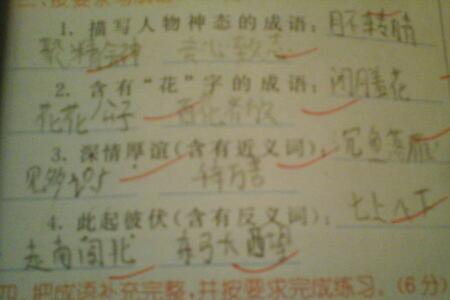 1. 描写人物神态的成语：目不转睛
聚精会神 专心致志
2. 含有“花”字的成语：闭月羞花
花花公子 百花齐放
3. 深情厚谊（含有近义词）：沉鱼落雁
见多识
4. 此起彼伏（含有反义词）：七上八下
走南闯北 东
四、把成语补充完整，并按要求完成练习。（6分）